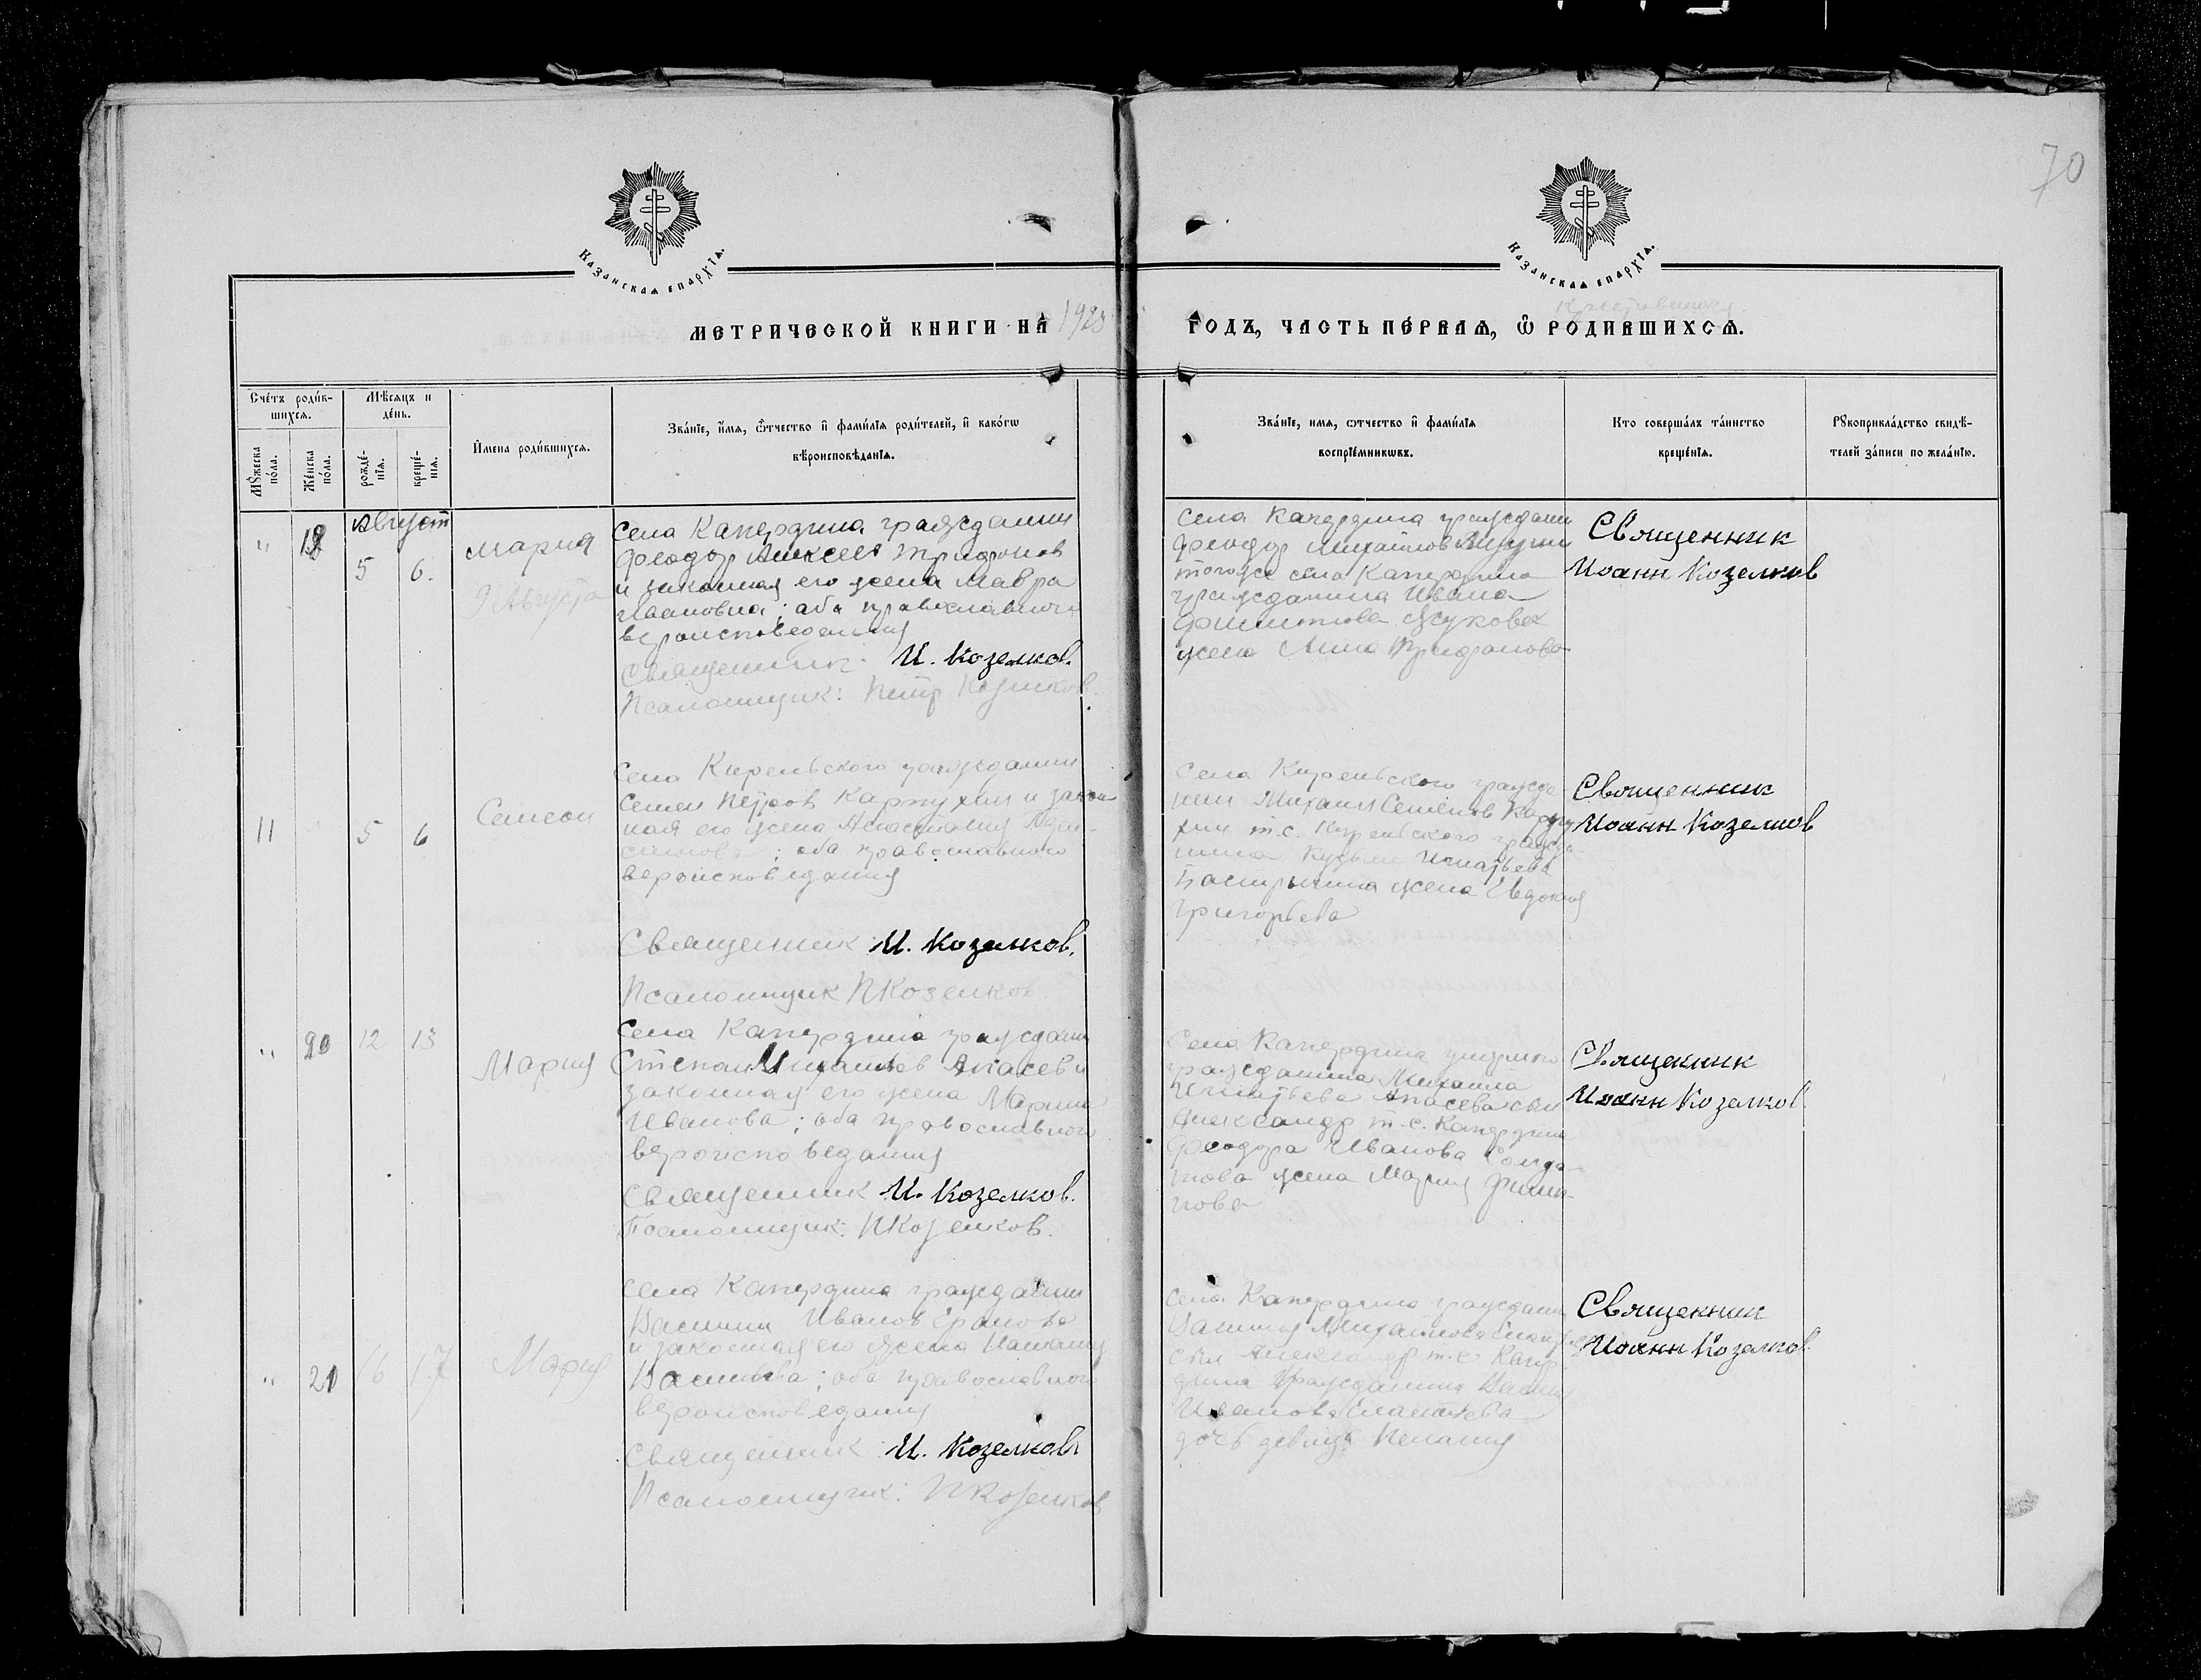 70
Казанская епархїѧ.
Казанская епархїѧ.
МЕТРИЧЕСКОЙ КНИГИ НА 1923
ГОДЪ, ЧАСТЬ ПЕ́РВАѦ, Ѡ҆ РОДИВШИХСѦ.
Счетъ роди́вшихсѧ.
Мꙋ́жеска по́ла.
Же́нска по́ла.
Мѣ́сѧцъ и де́нь.
рожде́нїѧ.
креще́нїѧ.
И҆мена роди́вшихсѧ.
Зва́нїе, и҆́мѧ, ѻ҆́тчество и҆ фами́лїѧ роди́телей, и҆ како́гѡ
вѣ́роисповѣ́данїѧ.
Зва́нїе, имѧ, ѻтчество и҆ фами́лїѧ
воспрїе́мникѡвъ.
Кто совершалъ та́инство
креще́нїѧ.
Рꙋкоприкла́дство свидѣ́телей за́писи по жела́нїю.
Август
" 5 6.
Мария
9 Августа
Села Капердина гражданин
Феодор Алексеев Трифонов
и законная его жена Мавра
Ивановна; оба православного
вероисповедания
Священник: И. Козелков.
Псаломщик: Петр Козелков.
Села Капердина граждан
Феодор Михайлов
тогоже села Капердина
гражданина Ивана
Филиппова Жукова
жена Анна Трифонова
Священник
Иоанн Козелков
11 5 6
Симеон
Села Кирельского гражданин
Семен Петров Карпухин и закон
ная его жена Анастасия
оба православного
вероисповедания
Священник И. Козелков.
Псаломщик П Козелков
Села Кирельского гражда
нин Михаил Семёнов Карпу
хин т.с. Кирельского гражда-
нина Кузьмы Игнатьева
жена Евдокия
Григорьева
Священник
Иоанн Козелков
" 20 12 13
Мария
Села Капердина граждан
Степан Игнатьев Апасев и
законная его жена Мария
Иванова; оба православного
вероисповедания
Священник И. Козелков.
Псаломщик: П Козелков.
Села Капердина
гражданина Михаила
Игнатьева Апасева сын
Александр т.с. Капердина
Феодора Иванова Солда-
това жена Мария Филип-
пова
Священник
Иоанн Козелков
" 21 16 17
Мария
Села Капердина гражданин
Василий Иванов
и законная его жена
Васильева; оба православного
вероисповедания
Священник И. Козелков
Псаломщик: П Козелков
Села Капердина граждан
Василия Михайлова
сын Александр т.с. Капер
дина гражданина Васил
Иванова
дочь девица Пелагия
Священник
Иоанн Козелков